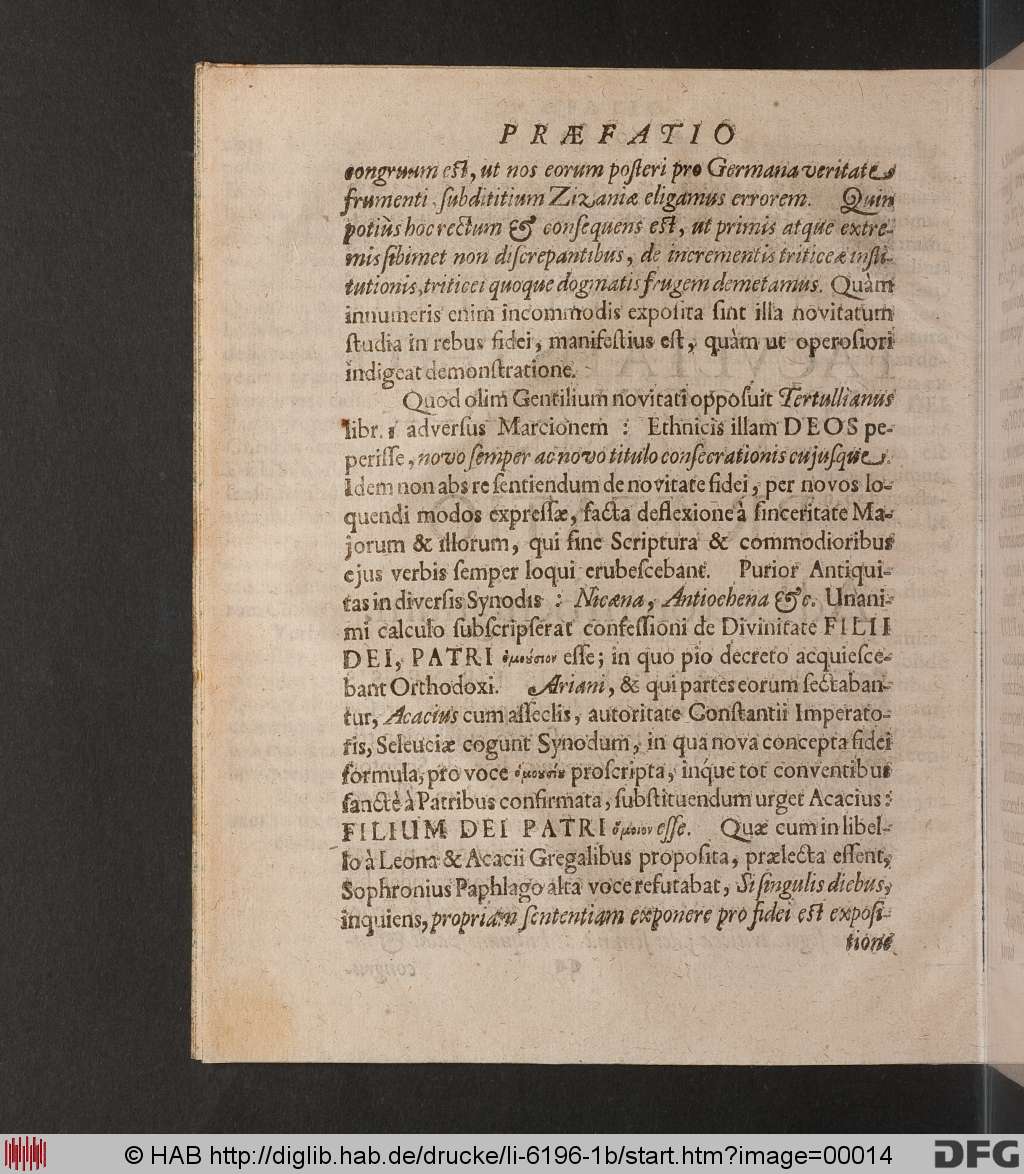 PRÆFATIO
congruum est, ut nos eorum posteri pro Germana veritate
frumenti subdititium Zizaniæ eligamus errorem. Quin
potiùs hoc rectum & consequens est, ut primis atque extre-
mis sibimet non discrepantibus, de incrementis triticeæ insti-
tutionis, triticei quoque dogmatis frugem demetamus. Quàm
innumeris enim incommodis exposita sint illa novitatum
studia in rebus fidei, manifestius est, quàm ut operosiori
indigeat demonstratione.
Quod olim Gentilium novitati opposuit Tertullianus
libr. 1 adversus Marcionem : Ethnicis illam DEOS pe-
perisse, novo semper ac novo titulo consecrationis cujusque.
Idem non abs re sentiendum de novitate fidei, per novos lo-
quendi modos expressæ, facta deflexione à sinceritate Ma-
jorum & illorum, qui sine Scriptura & commodioribus
ejus verbis semper loqui erubescebant. Purior Antiqui-
tas in diversis Synodis : Nicæna, Antiochena &c. Unani-
mi calculo subscripserat confessioni de Divinitate FILII
DEI, PATRI ὁμούσιον esse; in quo pio decreto acquiesce-
bant Orthodoxi. Ariani, & qui partes eorum sectaban-
tur, Acacius cum asseclis, autoritate Constantii Imperato-
ris, Seleuciæ cogunt Synodum, in qua nova concepta fidei
formula, pro voce proscripta, inque tot conventibus
sanctè à Patribus confirmata, substituendum urget Acacius:
FILIUM DEI PATRI ὅμοιον esse. Quæ cum in libel-
lo à Leona & Acacii Gregalibus proposita, prælecta essent,
Sophronius Paphlago alta voce refutabat, Si singulis diebus,
inquiens, propriam sententiam exponere pro fidei est exposi-
tione
© HAB http://diglib.hab.de/drucke/li-6196-1b/start.htm?image=00014
DFG